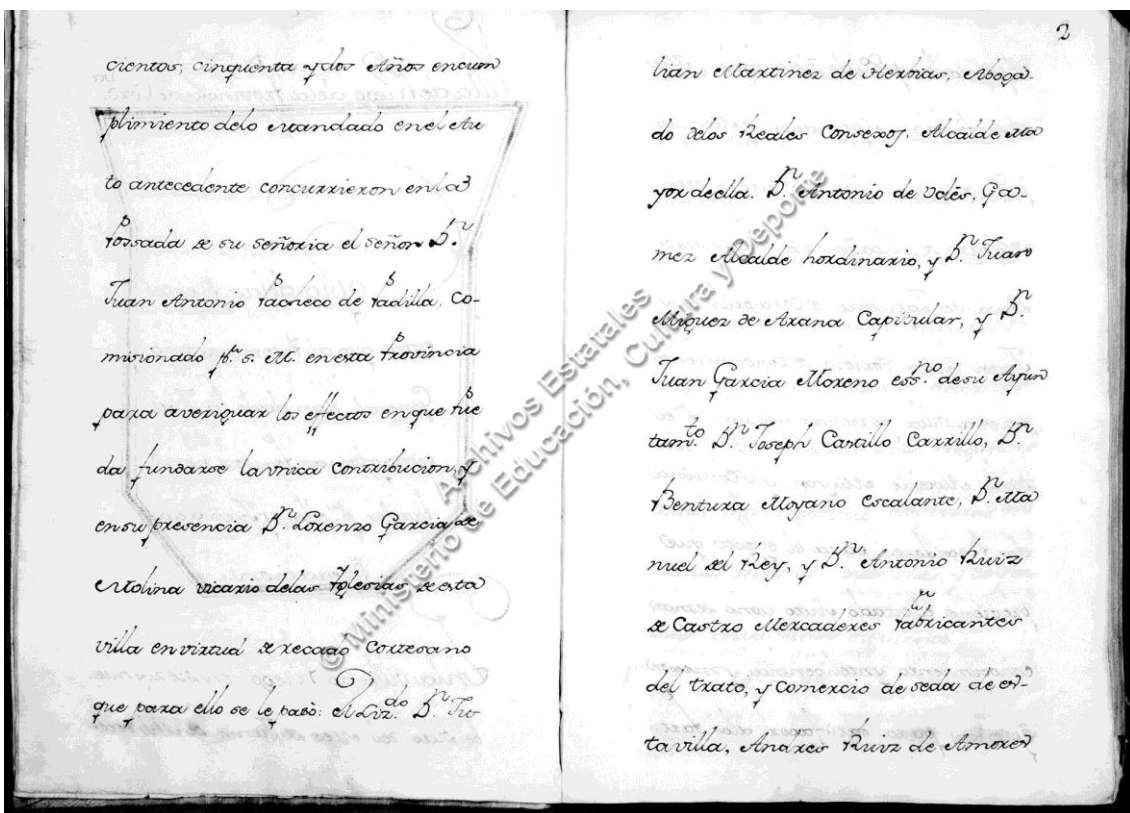 cientos, cinquenta y dos Años encun
plimiento delo Mandado enel Au
to antecedente concurrieron en la
Possada de su señoria el señor Dn.
Juan Antonio Pacheco de Padilla, Co-
misionado pr. s. M. en esta Provincia
para averiguar los effectos en que Pue
da fundarse la vnica Contribucion, y
en su presencia Dn. Lorenzo Garcia de
Molina vicario delas Yglesias de esta
villa en virtud de recado Cortesano
que para ello se le pasò: el Lizdo. Dn. Ju-
2
lian Martinez de Herbias, Aboga-
do delos Reales Consexos, Alcalde Ma
yor de ella. Dn Antonio de Vclès, Ga-
mez Alcalde hordinario, y Dn. Juan
Miguez de Arana Capitular, y Dn.
Juan Garcia Moreno essno. de su Ayun
tamto. Dn Joseph Castillo Carrillo, Dn
Bentura Moyano Escalante, Dn. Ma
nuel del Rey, y Dn. Antonio Ruiz
de Castro Mercaderes fabricantes
del trato, y Comercio de seda de es-
ta villa, Andres Ruiz de Amores
© Ministerio de Educación, Cultura y Deporte
Archivos Estatales